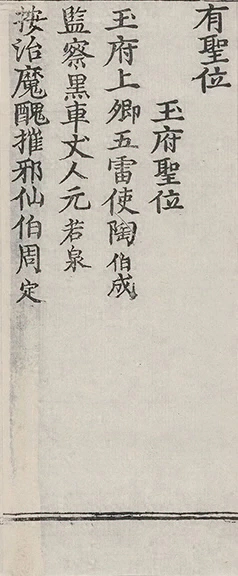 有聖位
玉府聖位
玉府上卿五雷使陶伯成
監察黑車丈人元若泉
按治魔醜摧邪仙伯周定